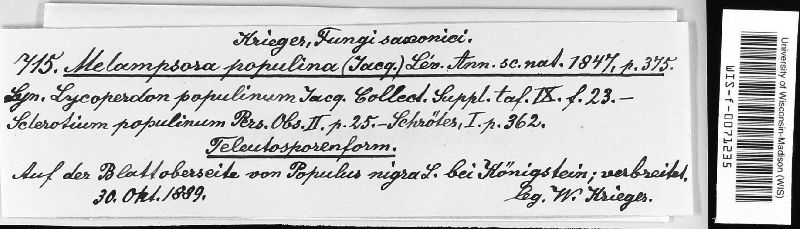 Krieger, Fungi saxonici.
715. Melampsora populina (Jacq.) Lév. Ann. sc. nat. 1847, p. 375.
Syn. Lycoperdon populinum Jacq. Collect. Suppl. taf. IX. f. 23. –
Sclerotium populinum Pers. Obs. II. p. 25. – Schröter, I. p. 362.
Teleutosporenform.
Auf der Blattoberseite von Populus nigra L. bei Königstein; verbreitet.
30. Okt. 1889. leg. W. Krieger.
University of Wisconsin-Madison (WIS)
WIS-f-0071235